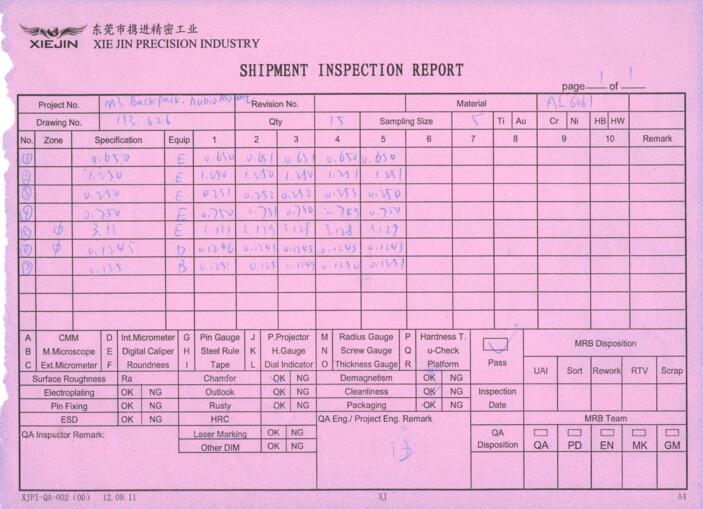 东莞市携进精密工业
XIEJIN XIE JIN PRECISION INDUSTRY
SHIPMENT INSPECTION REPORT
page 1 of 1
Project No. M3 Backpack. Audio Mount Revision No. Material AL6061
Drawing No. 113.626 Qty 15 Sampling Size 5 Ti Au Cr Ni HB HW
No. Zone Specification Equip 1 2 3 4 5 6 7 8 9 10 Remark
① 0.650 E 0.650 0.651 0.651 0.650 0.650
② 1.250 E 1.250 1.250 1.250 1.251 1.251
③ 0.250 E 0.251 0.252 0.252 0.253 0.250
④ 0.750 E 0.750 0.751 0.750 0.749 0.750
⑤ φ 3.13 E 3.131 3.129 3.128 3.128 3.129
⑥ φ 0.1245 D 0.1246 0.1243 0.1245 0.1245 0.1243
⑦ 0.125 B 0.1251 0.125 0.1249 0.1250 0.1251
A CMM D Int.Micrometer G Pin Gauge J P.Projector M Radius Gauge P Hardness T.
B M.Microscope E Digital Caliper H Steel Rule K H.Gauge N Screw Gauge Q u-Check
C Ext.Micrometer F Roundness I Tape L Dial Indicator O Thickness Gauge R Platform
Pass
MRB Disposition
UAI Sort Rework RTV Scrap
Surface Roughness Ra Chamfer OK NG Demagnetism OK NG
Electroplating OK NG Outlook OK NG Cleanliness OK NG Inspection
Pin Fixing OK NG Rusty OK NG Packaging OK NG Date
ESD OK NG HRC QA Eng./ Project Eng. Remark MRB Team
QA Inspector Remark: Laser Marking OK NG
Other DIM OK NG
QA Disposition QA PD EN MK GM
XJPI-QA-002 (00) 12.09.11 XJ A4